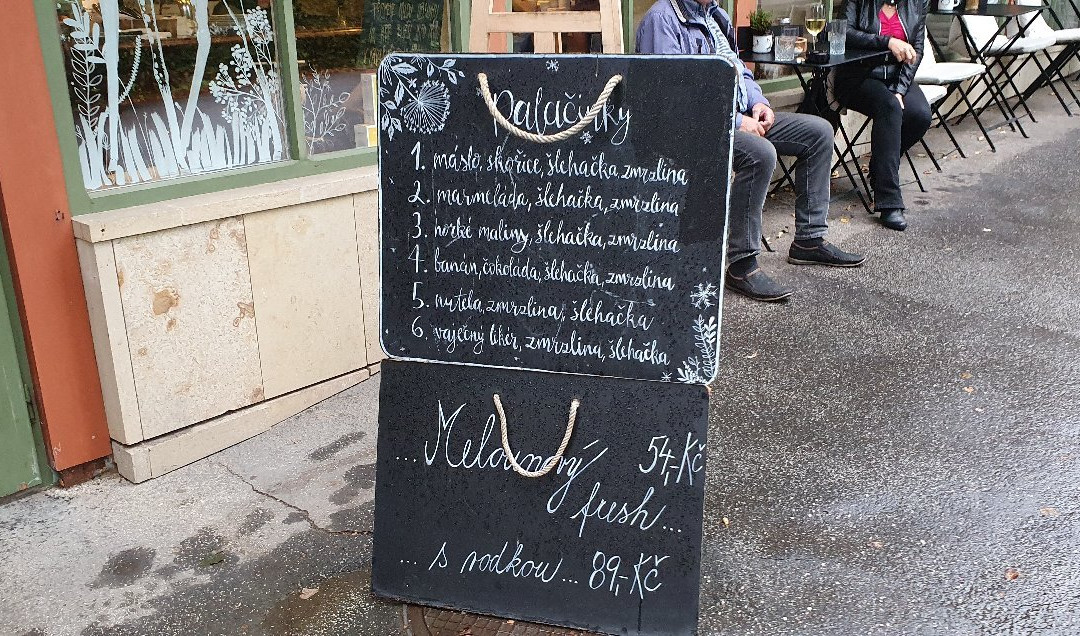 Palačinky
1. máslo, skořice, šlehačka, zmrzlina
2. marmeláda, šlehačka, zmrzlina
3. horké maliny, šlehačka, zmrzlina
4. banán, čokoláda, šlehačka, zmrzlina
5. nutela, zmrzlina, šlehačka
6. vaječný likér, zmrzlina, šlehačka
...Melounový 54,-Kč
fresh...
... s vodkou... 89,-Kč